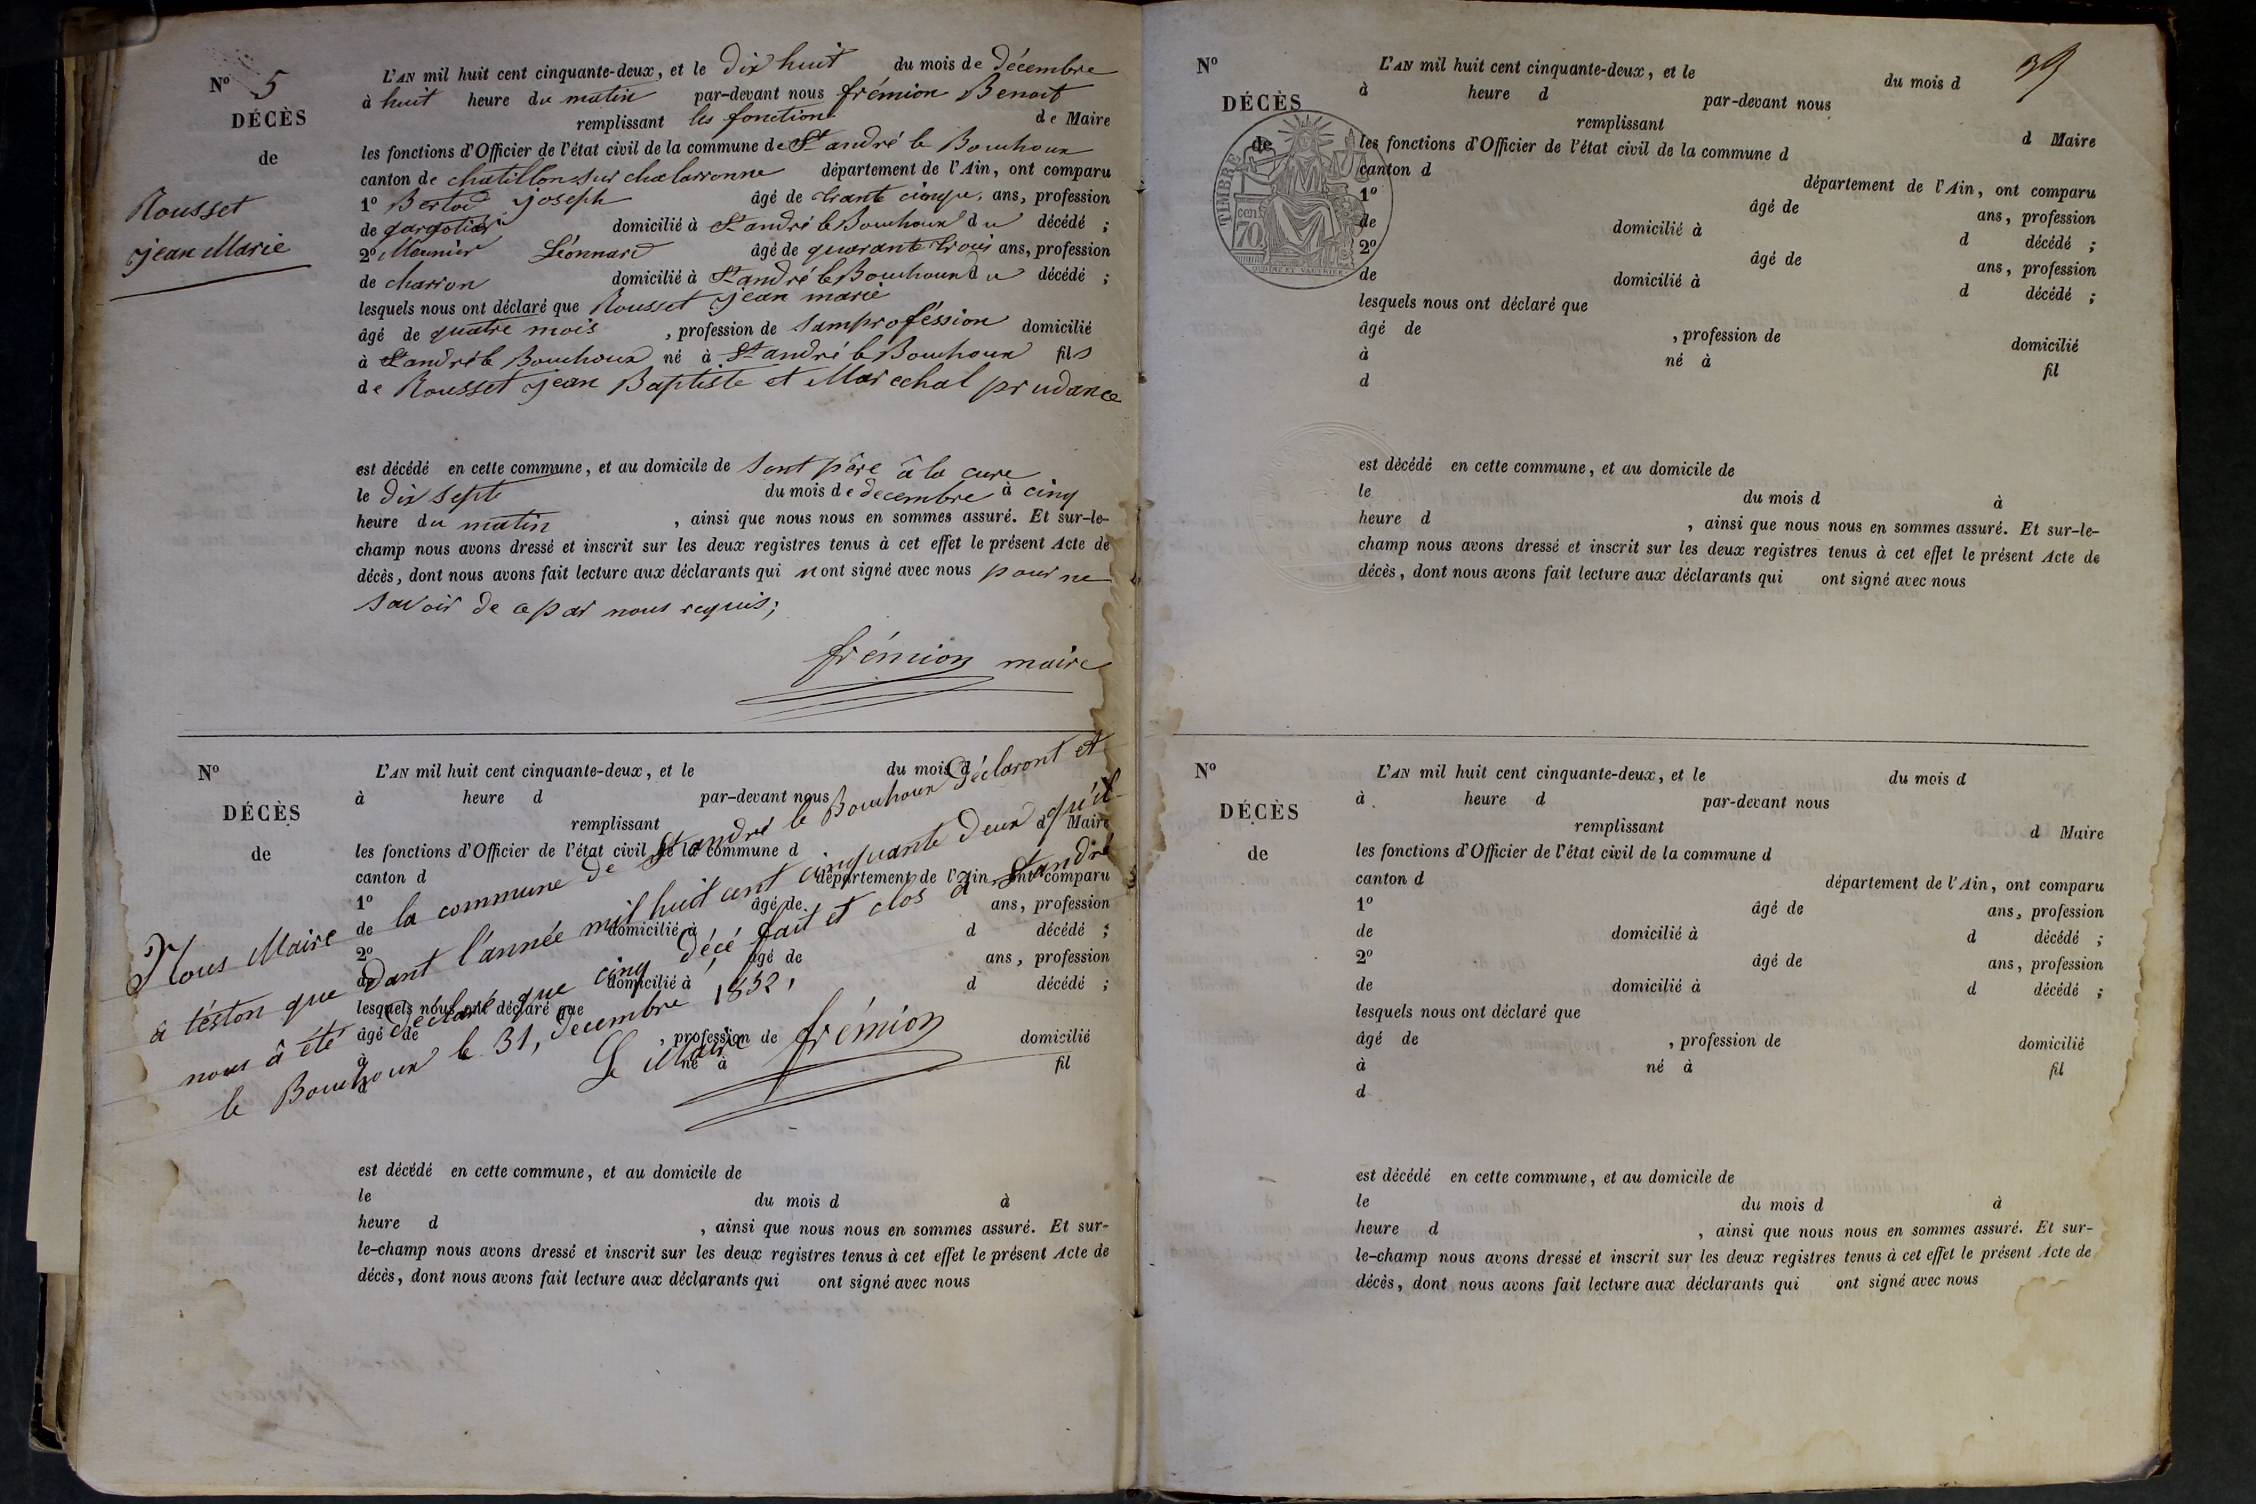 Nº 5
DÉCÈS
de
Rousset
jean Marie
L'AN mil huit cent cinquante-deux, et le dix huit du mois de décembre
à huit heure du matin par-devant nous frémion Benoit
remplissant les fonctions de Maire
les fonctions d'Officier de l'état civil de la commune de St andré le Bouchoux
canton de chatillon sur chalaronne département de l'Ain, ont comparu
1º joseph âgé de trante cinque, ans, profession
de domicilié à St andré le Bouchoux du décédé ;
2º Monnier Léonnard âgé de quarante trois ans, profession
de charron domicilié à St andré le Bouchoux du décédé ;
lesquels nous ont déclaré que Rousset jean marie
âgé de quatre mois , profession de samprofession domicilié
à St andré le Bouchoux né à St andré le Bouchoux fils
de Rousset jean Baptiste et Marechal prudance
est décédé en cette commune, et au domicile de sont père â la cure
le dix septe du mois de decembre à cinq
heure du matin , ainsi que nous nous en sommes assuré. Et sur-le-
champ nous avons dressé et inscrit sur les deux registres tenus à cet effet le présent Acte de
décès, dont nous avons fait lecture aux déclarants qui n ont signé avec nous pour ne
savoir de ce par nous requis;
frémion maire
Nº
DÉCÈS
de
L'AN mil huit cent cinquante-deux, et le du mois d
à heure d par-devant nous
remplissant d Maire
les fonctions d'Officier de l'état civil de la commune d
canton d département de l'Ain, ont comparu
1º âgé de ans, profession
de domicilié à d décédé ;
2º âgé de ans, profession
de domicilié à d décédé ;
lesquels nous ont déclaré que
âgé de , profession de domicilié
à né à fil
d
Nous Maire de la commune de St andré le Bouchoux déclaront et
â téston que pandant l'année mil huit cent cinquante deux qu'il
nous â été déclaré que cinq décé fait et clos a St andré
le Bouchoux le 31, decembre 1852,
Le Maire frémion
est décédé en cette commune, et au domicile de
le du mois d à
heure d , ainsi que nous nous en sommes assuré. Et sur-
le-champ nous avons dressé et inscrit sur les deux registres tenus à cet effet le présent Acte de
décès, dont nous avons fait lecture aux déclarants qui ont signé avec nous
39
Nº
DÉCÈS
de
TIMBRE
cen
70
L'AN mil huit cent cinquante-deux, et le du mois d
à heure d par-devant nous
remplissant d Maire
les fonctions d'Officier de l'état civil de la commune d
canton d département de l'Ain, ont comparu
1º âgé de ans, profession
de domicilié à d décédé ;
2º âgé de ans, profession
de domicilié à d décédé ;
lesquels nous ont déclaré que
âgé de , profession de domicilié
à né à fil
d
est décédé en cette commune, et au domicile de
le du mois d à
heure d , ainsi que nous nous en sommes assuré. Et sur-le-
champ nous avons dressé et inscrit sur les deux registres tenus à cet effet le présent Acte de
décès, dont nous avons fait lecture aux déclarants qui ont signé avec nous
Nº
DÉCÈS
de
L'AN mil huit cent cinquante-deux, et le du mois d
à heure d par-devant nous
remplissant d Maire
les fonctions d'Officier de l'état civil de la commune d
canton d département de l'Ain, ont comparu
1º âgé de ans, profession
de domicilié à d décédé ;
2º âgé de ans, profession
de domicilié à d décédé ;
lesquels nous ont déclaré que
âgé de , profession de domicilié
à né à fil
d
est décédé en cette commune, et au domicile de
le du mois d à
heure d , ainsi que nous nous en sommes assuré. Et sur-
le-champ nous avons dressé et inscrit sur les deux registres tenus à cet effet le présent Acte de
décès, dont nous avons fait lecture aux déclarants qui ont signé avec nous